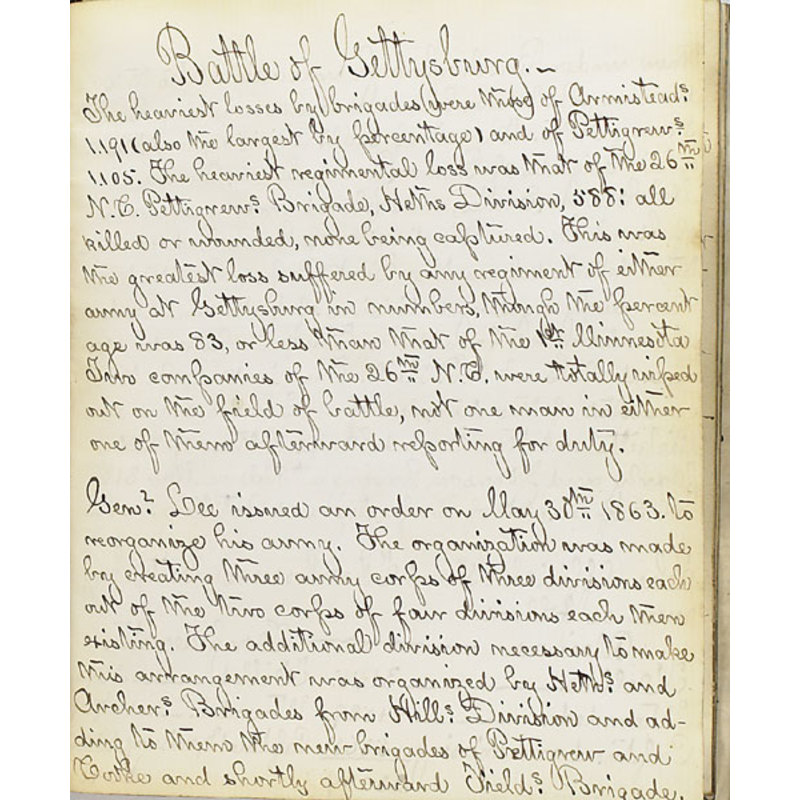 Battle of Gettysburg.~
The heaviest losses by brigades (were those) of Armistead's
1.191 (also the largest by percentage) and of Pettigrew's
1.105. The heaviest regimental loss was that of the 26th
N.C. Pettigrew's Brigade, Heths Division, 588: all
killed or wounded, none being captured. This was
the greatest loss suffered by any regiment of either
army at Gettysburg in numbers, though the percent
age was 83, or less than that of the 1st Minnesota
Two companies of the 26th N.C. were totally wiped
out on the field of battle, not one man in either
one of them afterward reporting for duty.

Genl. Lee issued an order on May 30th 1863. to
reorganize his army. The organization was made
by creating three army corps of three divisions each
out of the two corps of four divisions each then
existing. The additional division necessary to make
this arrangement was organized by Heth's and
Archer's Brigades from Hill's Division and ad-
ding to them the new brigades of Pettigrew and
Cooke and shortly afterward Field's Brigade.